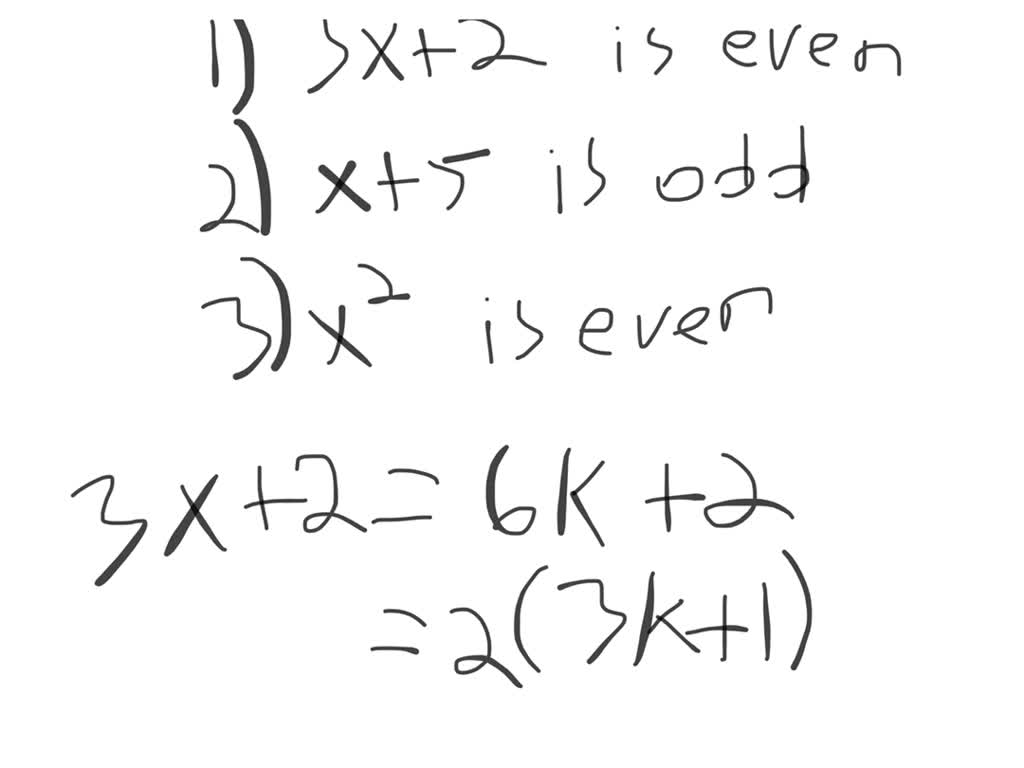 1) 3x+2 is even
2) x+5 is odd
3) x² is even
3x+2=6k+2
=2(3k+1)